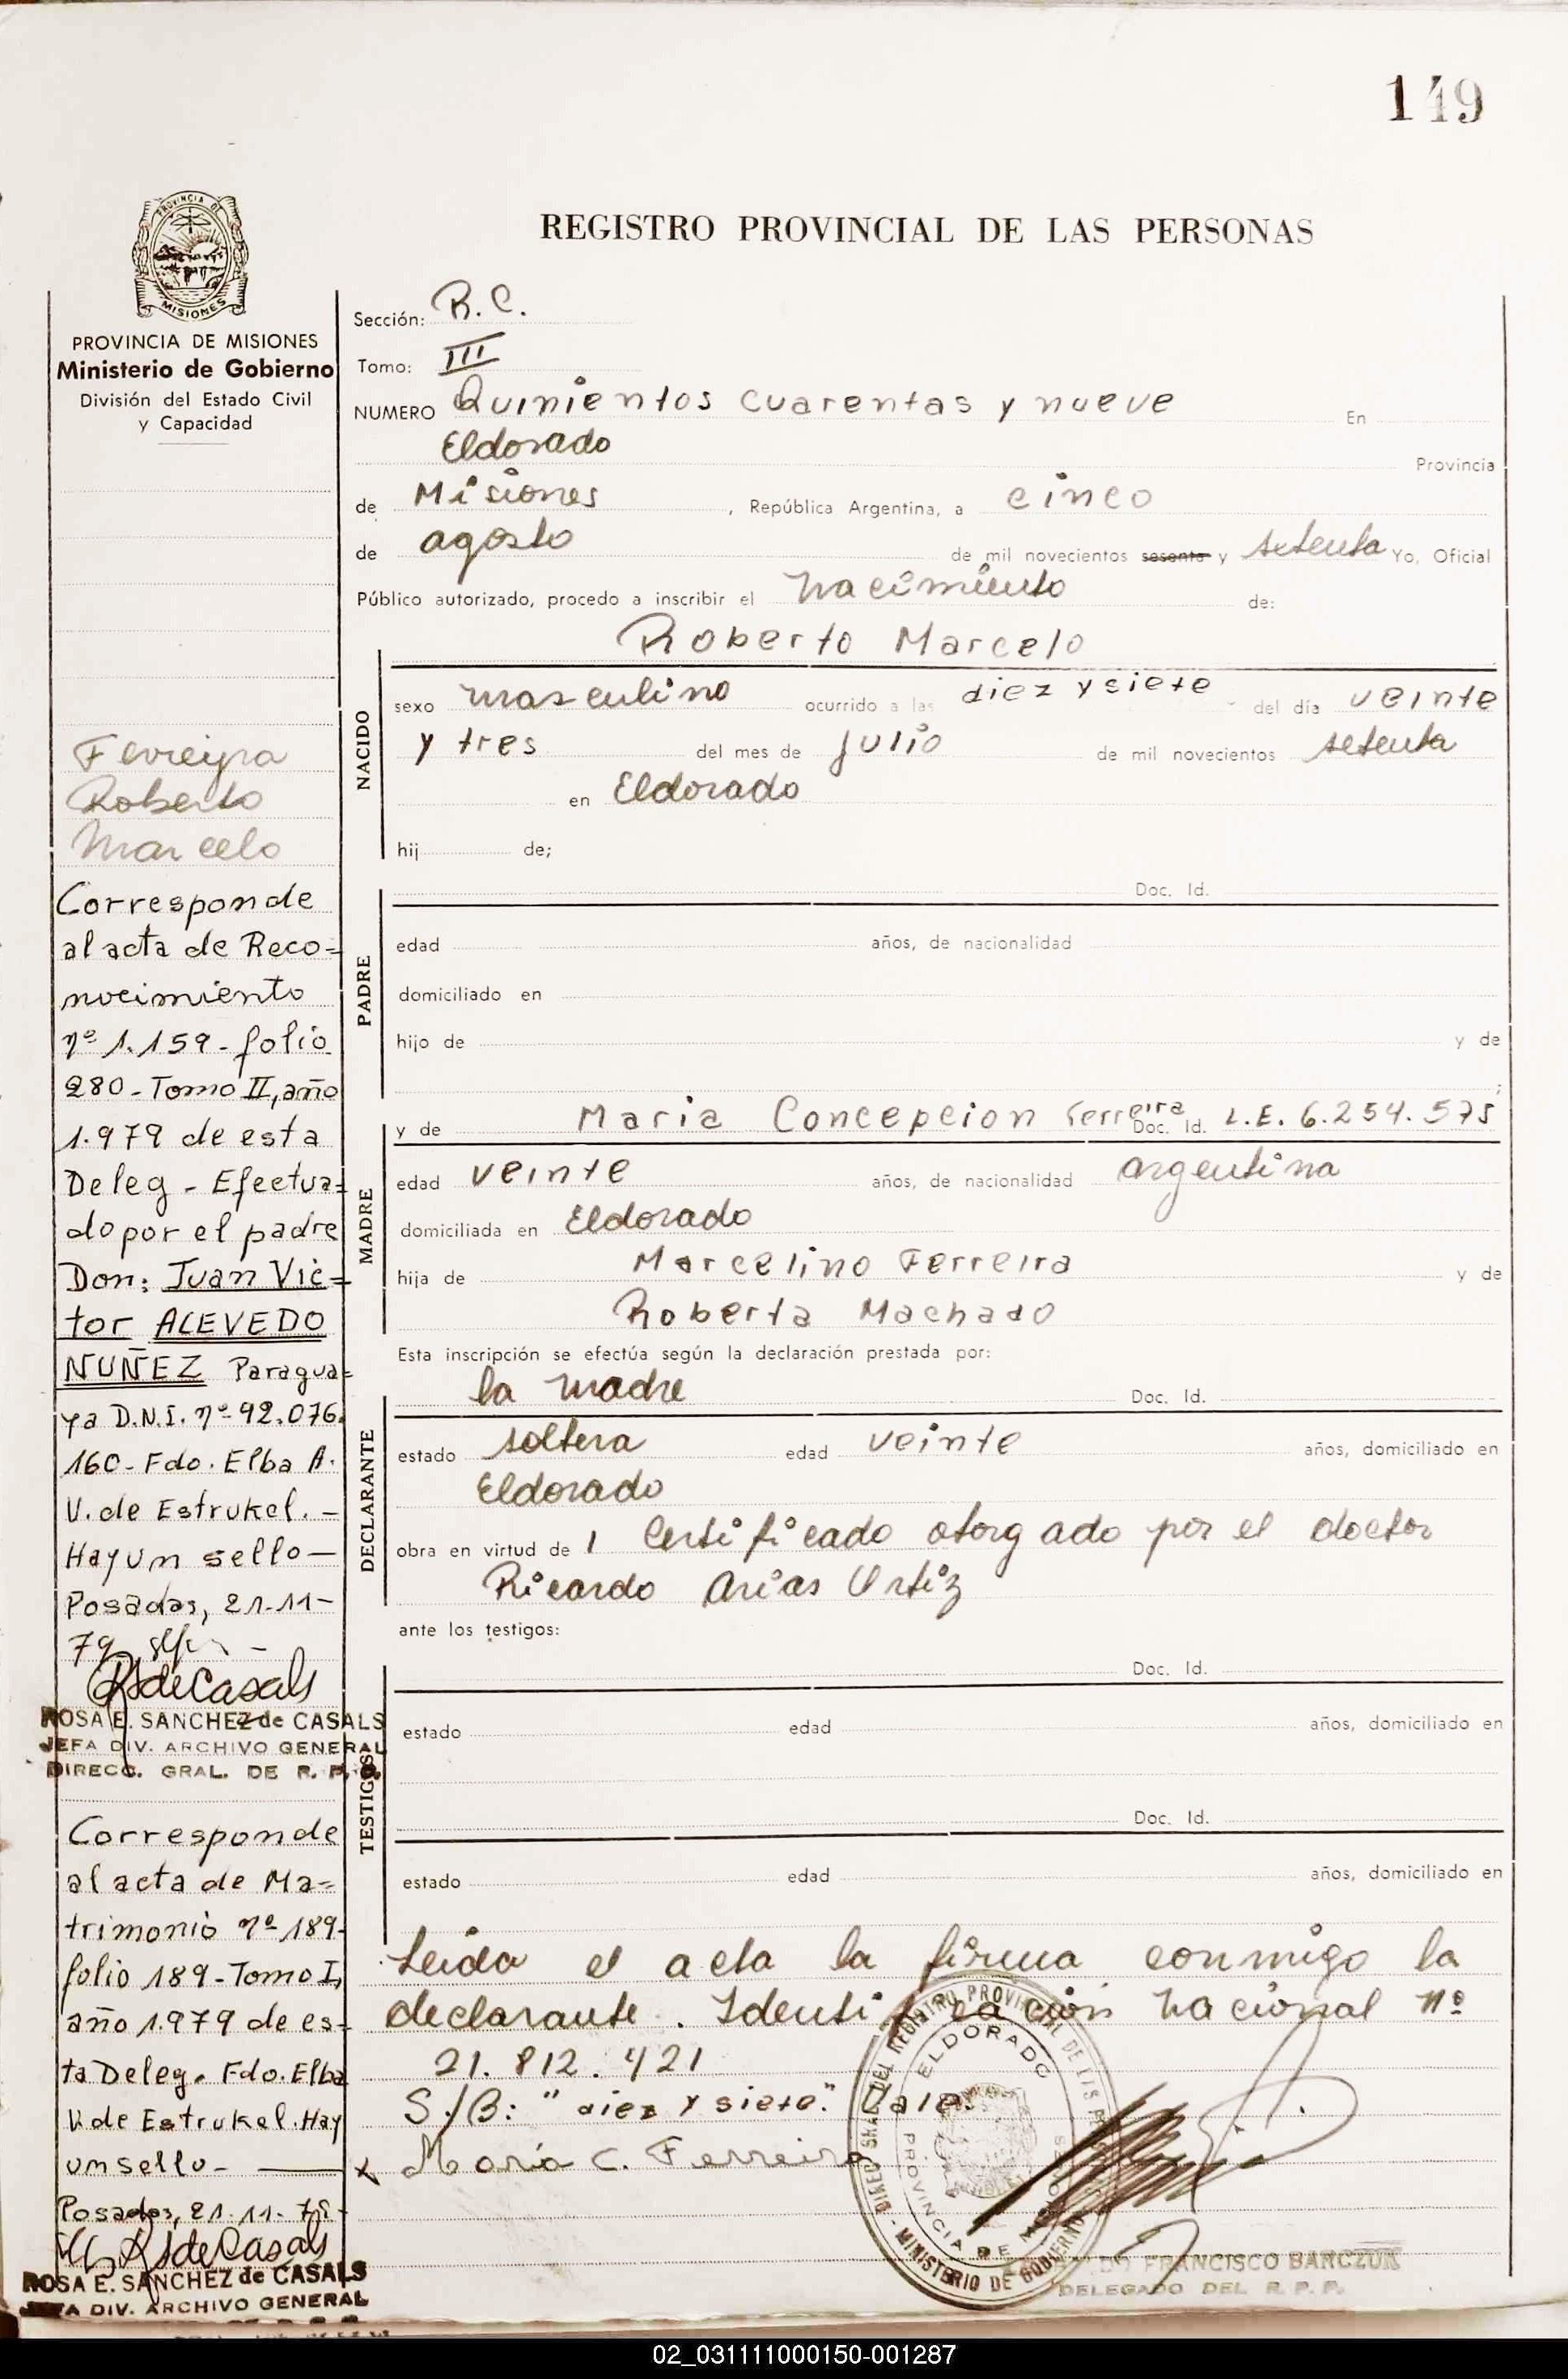 149
PROVINCIA DE
MISIONES
PROVINCIA DE MISIONES
Ministerio de Gobierno
División del Estado Civil
y Capacidad
REGISTRO PROVINCIAL DE LAS PERSONAS
Sección: R.C.
Tomo: III
NUMERO Quinientos cuarentas y nueve En
Eldorado Provincia
de Misiones , República Argentina, a cinco
de agosto de mil novecientos sesenta y setenta Yo, Oficial
Público autorizado, procedo a inscribir el nacimiento de:
Roberto Marcelo
NACIDO
sexo masculino ocurrido a las diez y siete del día veinte
y tres del mes de julio de mil novecientos setenta
en Eldorado
hij de;
PADRE
Doc. Id.
edad años, de nacionalidad
domiciliado en
hijo de y de
;
MADRE
y de Maria Concepcion Ferreira Doc. Id. L.E. 6.254.575
edad veinte años, de nacionalidad argentina
domiciliada en Eldorado
hija de Marcelino Ferreira y de
Roberta Machado
Esta inscripción se efectúa según la declaración prestada por:
DECLARANTE
la madre Doc. Id.
estado soltera edad veinte años, domiciliado en
Eldorado
obra en virtud de 1 Certificado otorgado por el doctor
Ricardo Arias Ortiz
ante los testigos:
TESTIGOS
Doc. Id.
estado edad años, domiciliado en
Doc. Id.
estado edad años, domiciliado en
Leida el acta la firma conmigo la
declarante. Identificación Nacional nº
21.812.421
S/B: "diez y siete". Vale.
x Maria C. Ferreira
REGISTRO PROVINCIAL DE LAS
ELDORADO
PROVINCIA DE
MINISTERIO DE GOBIERNO
FRANCISCO BARCZUK
DELEGADO DEL R. P. P.
Ferreira
Roberto
Marcelo
Corresponde
al acta de Reco=
nocimiento
nº 1.159- folio
280- Tomo II, año
1.979 de esta
Deleg - Efectua=
do por el padre
Don: Juan Vic=
tor ACEVEDO
NUÑEZ Paragua=
ya D.N.I. nº 92.076.
160- Fdo. Elba A.
V. de Estrukel. -
Hay un sello—
Posadas, 21-11-
79
RSdeCasals
ROSA E. SANCHEZ de CASALS
JEFA DIV. ARCHIVO GENERAL
DIRECC. GRAL. DE R. P. P.
Corresponde
al acta de Ma=
trimonio nº 189-
folio 189- Tomo I,
año 1.979 de es=
ta Deleg. Fdo. Elba
V. de Estrukel. Hay
un sello-
Posadas, 21-11-79-
RSdeCasals
ROSA E. SANCHEZ de CASALS
JEFA DIV. ARCHIVO GENERAL
02_031111000150-001287